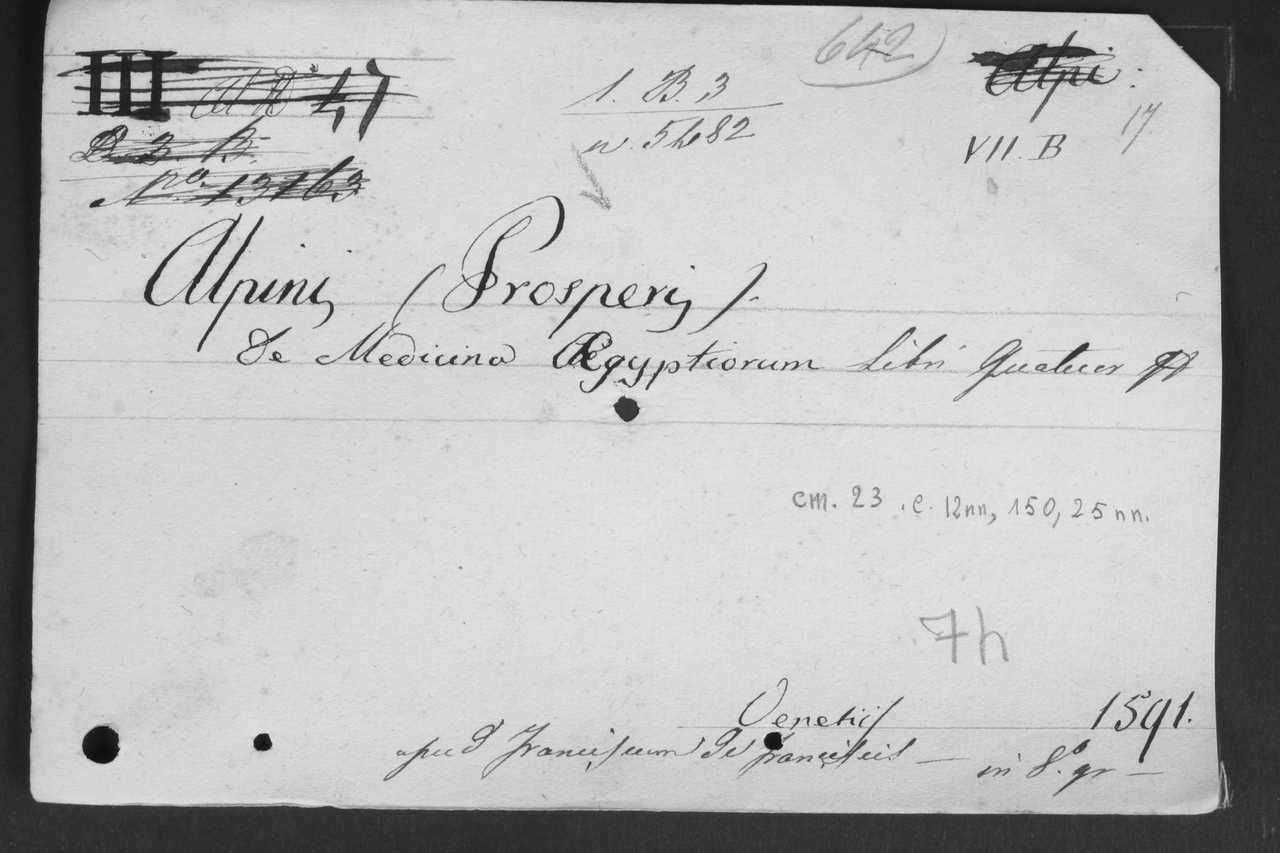 642
III 47
1. B. 3
n. 5482
Alpi:
17
VII. B
B. 3. B.
No. 13163
Alpinij (Prosperij).
De Medicina Ægyptiorum Libri Quatuor
cm. 23. c. 12nn, 150, 25 nn.
7h
Venetijs 1591.
apud Franciscum De Franciscis — in 8.° gr —